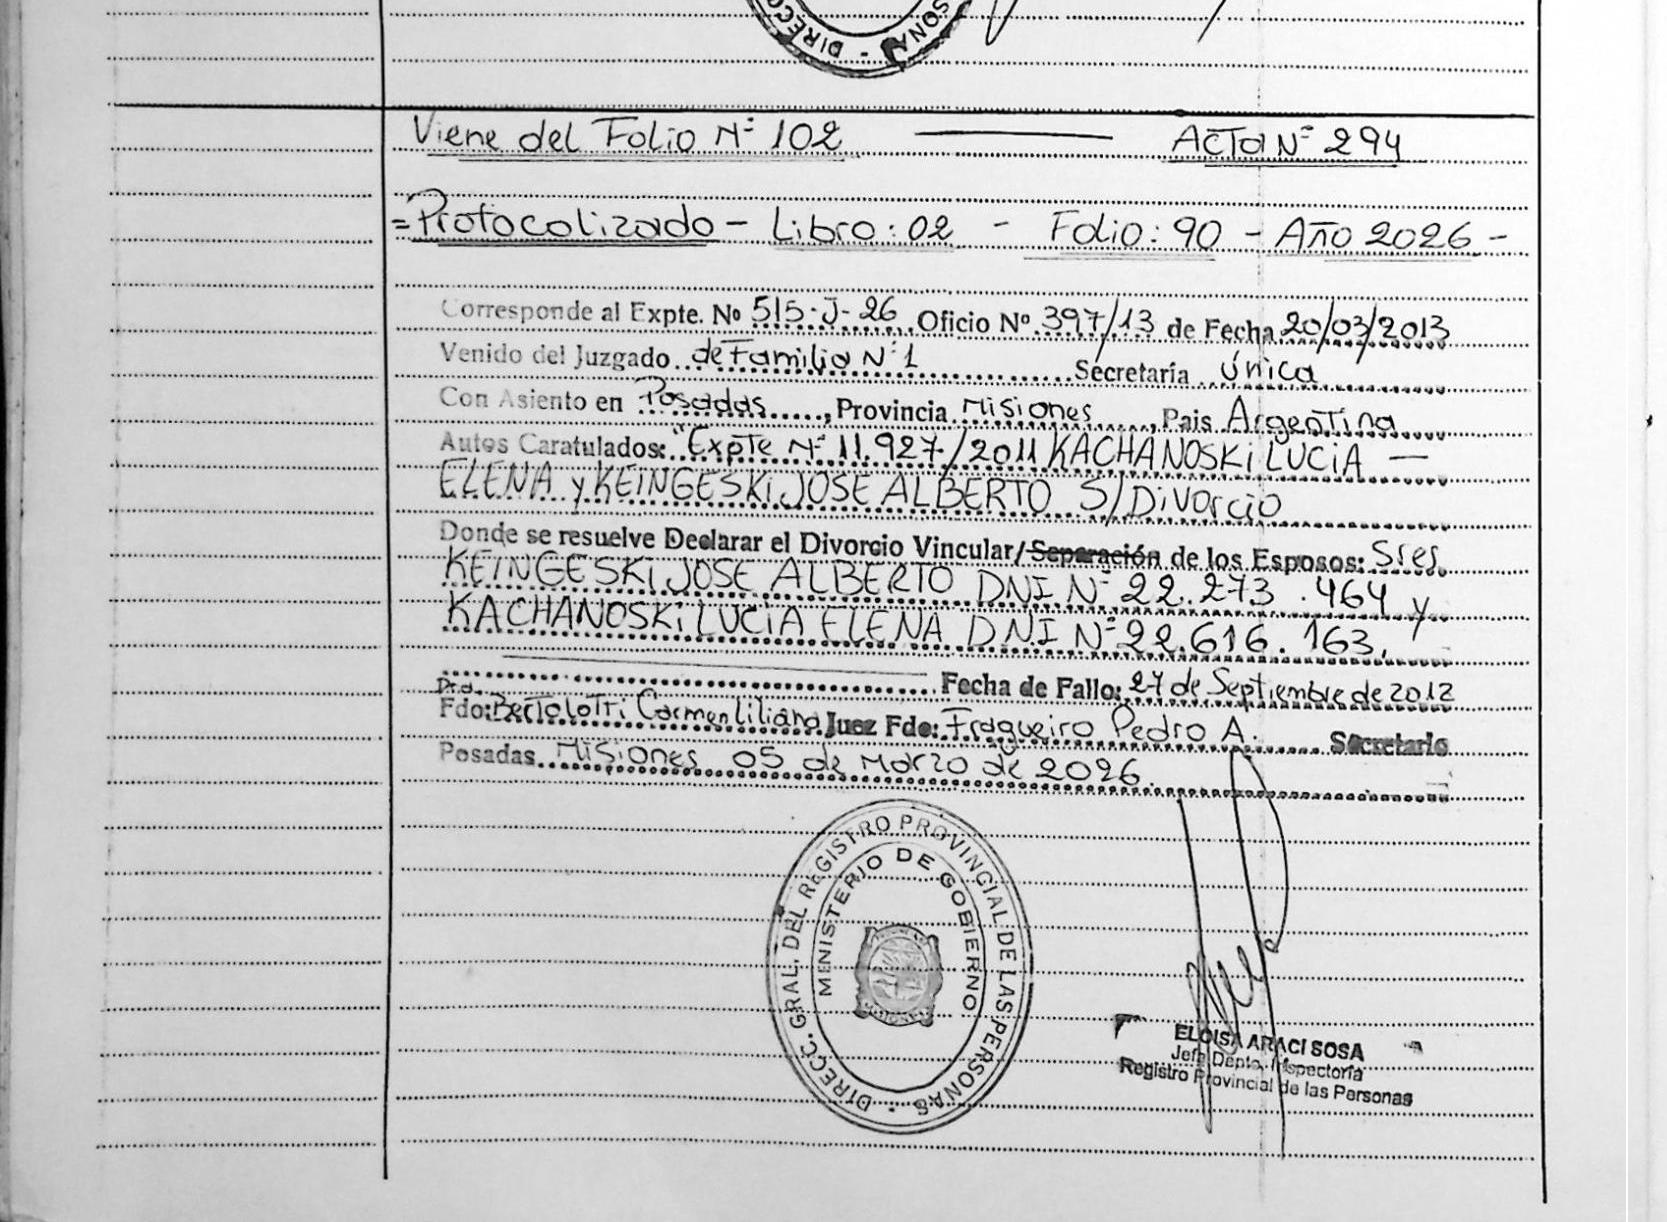 DIRECC
SONAS
Viene del Folio Nº 102 — Acta Nº 294
= Protocolizado - Libro: 02 - Folio: 90 - Año 2026 -
Corresponde al Expte. Nº 515-J-26 Oficio Nº 397/13 de Fecha 20/03/2013
Venido del Juzgado de Familia Nº 1 Secretaría Única
Con Asiento en Posadas, Provincia Misiones, Pais Argentina
Autos Caratulados: "Expte Nº 11.927/2011 KACHANOSKi LUCiA —
ELENA y KEiNGESKi JOSE ALBERTO S/Divorcio
Donde se resuelve Declarar el Divorcio Vincular/Separación de los Esposos: Sres.
KEiNGESKi JOSE ALBERTO DNI Nº 22.273.464 y
KACHANOSKi LUCiA ELENA DNI Nº 22.616.163.
Fecha de Fallo: 27 de Septiembre de 2012
Dra.
Fdo: Bertolotti Carmen Liliana Juez Fdo: Fragueiro Pedro A. Secretario
Posadas. Misiones 05 de Marzo de 2026
DIRECC. GRAL. DEL REGISTRO PROVINCIAL DE LAS PERSONAS
MINISTERIO DE GOBIERNO
MISIONES
ELOISA ARACI SOSA
Jefa Depto. Inspectoría
Registro Provincial de las Personas